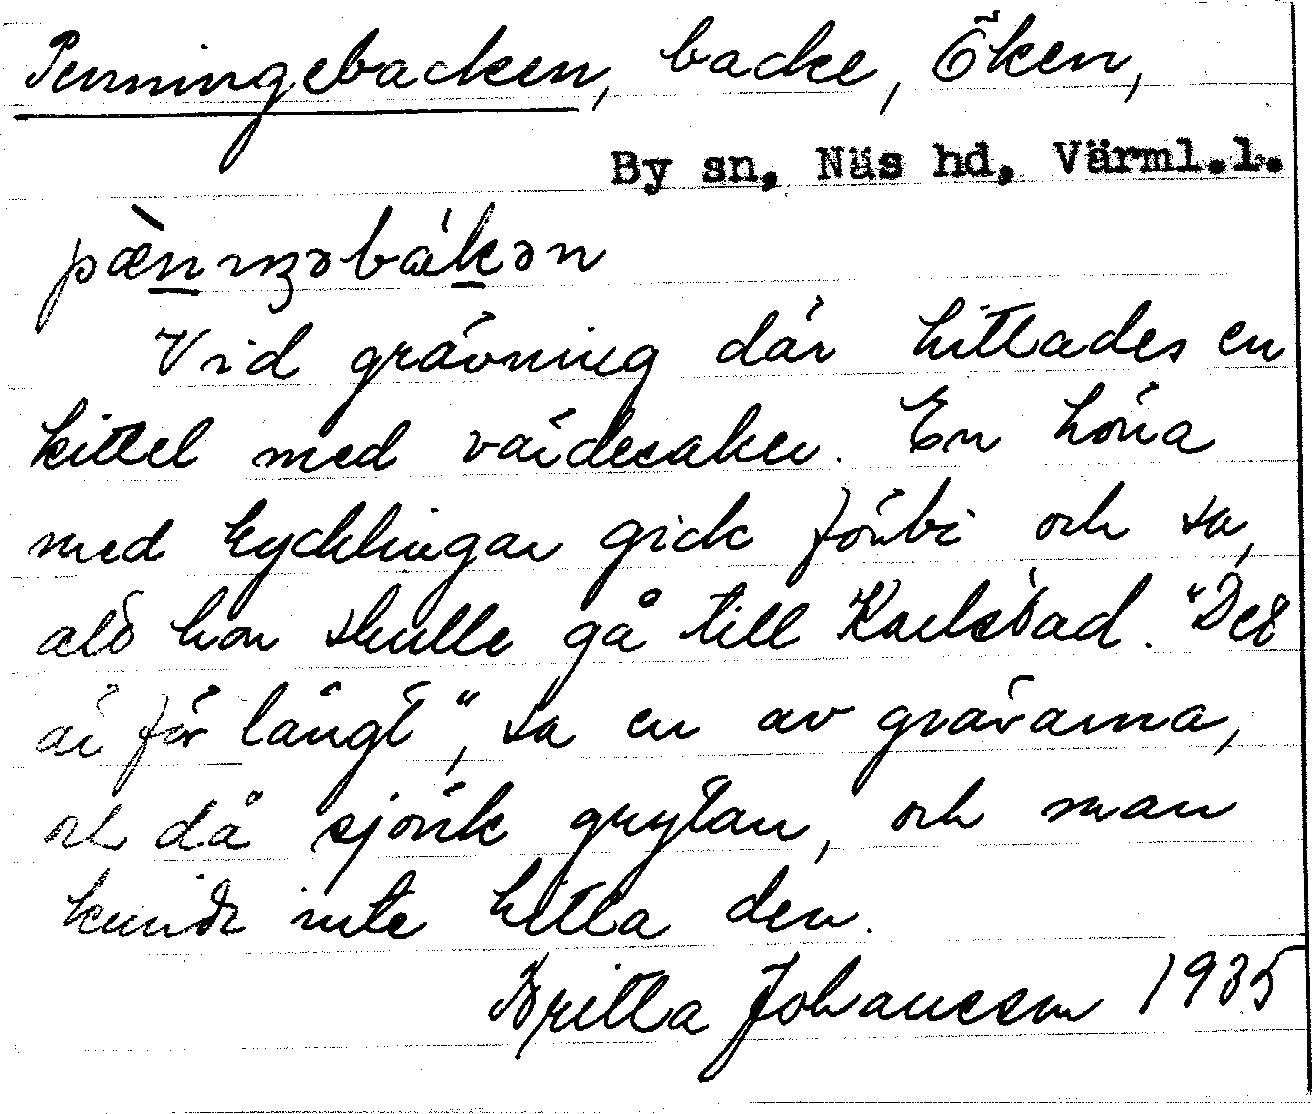 Penningebacken, backe, Öken,
By sn, Näs hd, Värml.l.
pæ̀nnıŋəbákən
Vid grävning där hittades en
kittel med värdesaker. En höna
med kycklingar gick förbi och sa,
att hon skulle gå till Karlstad. "Det
är för långt", sa en av grävarna,
och då sjönk grytan, och man
kunde inte hitta den.
Britta Johansson 1935